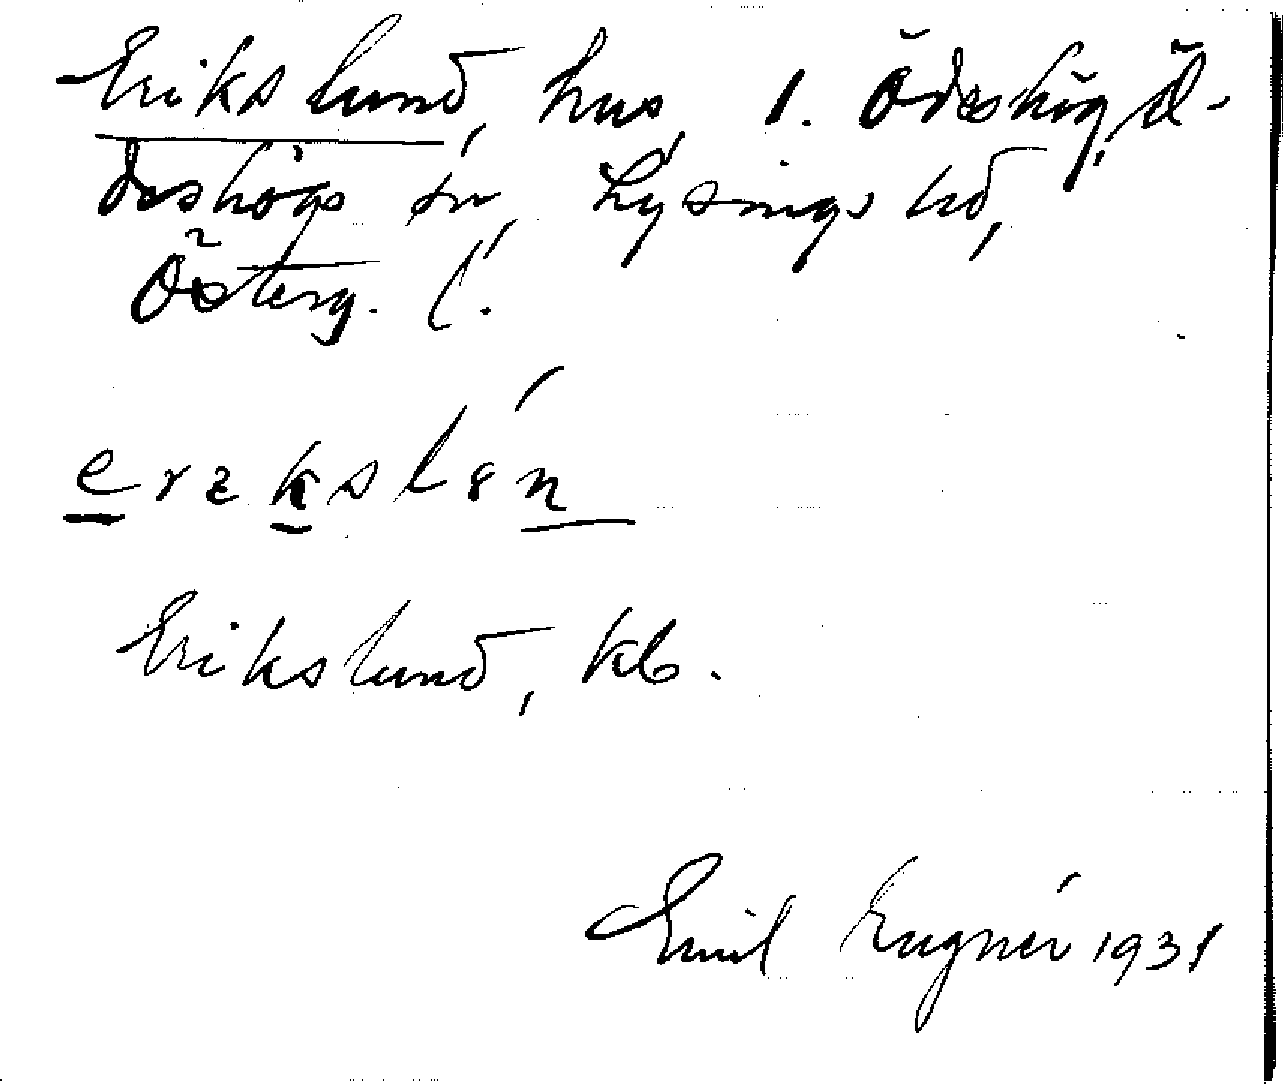 Erikslund, hus, 1. Ödeshög, Ö-
deshögs sn, Lysings hd,
Österg. l.
erekslén
Erikslund, kb.
Emil 1931